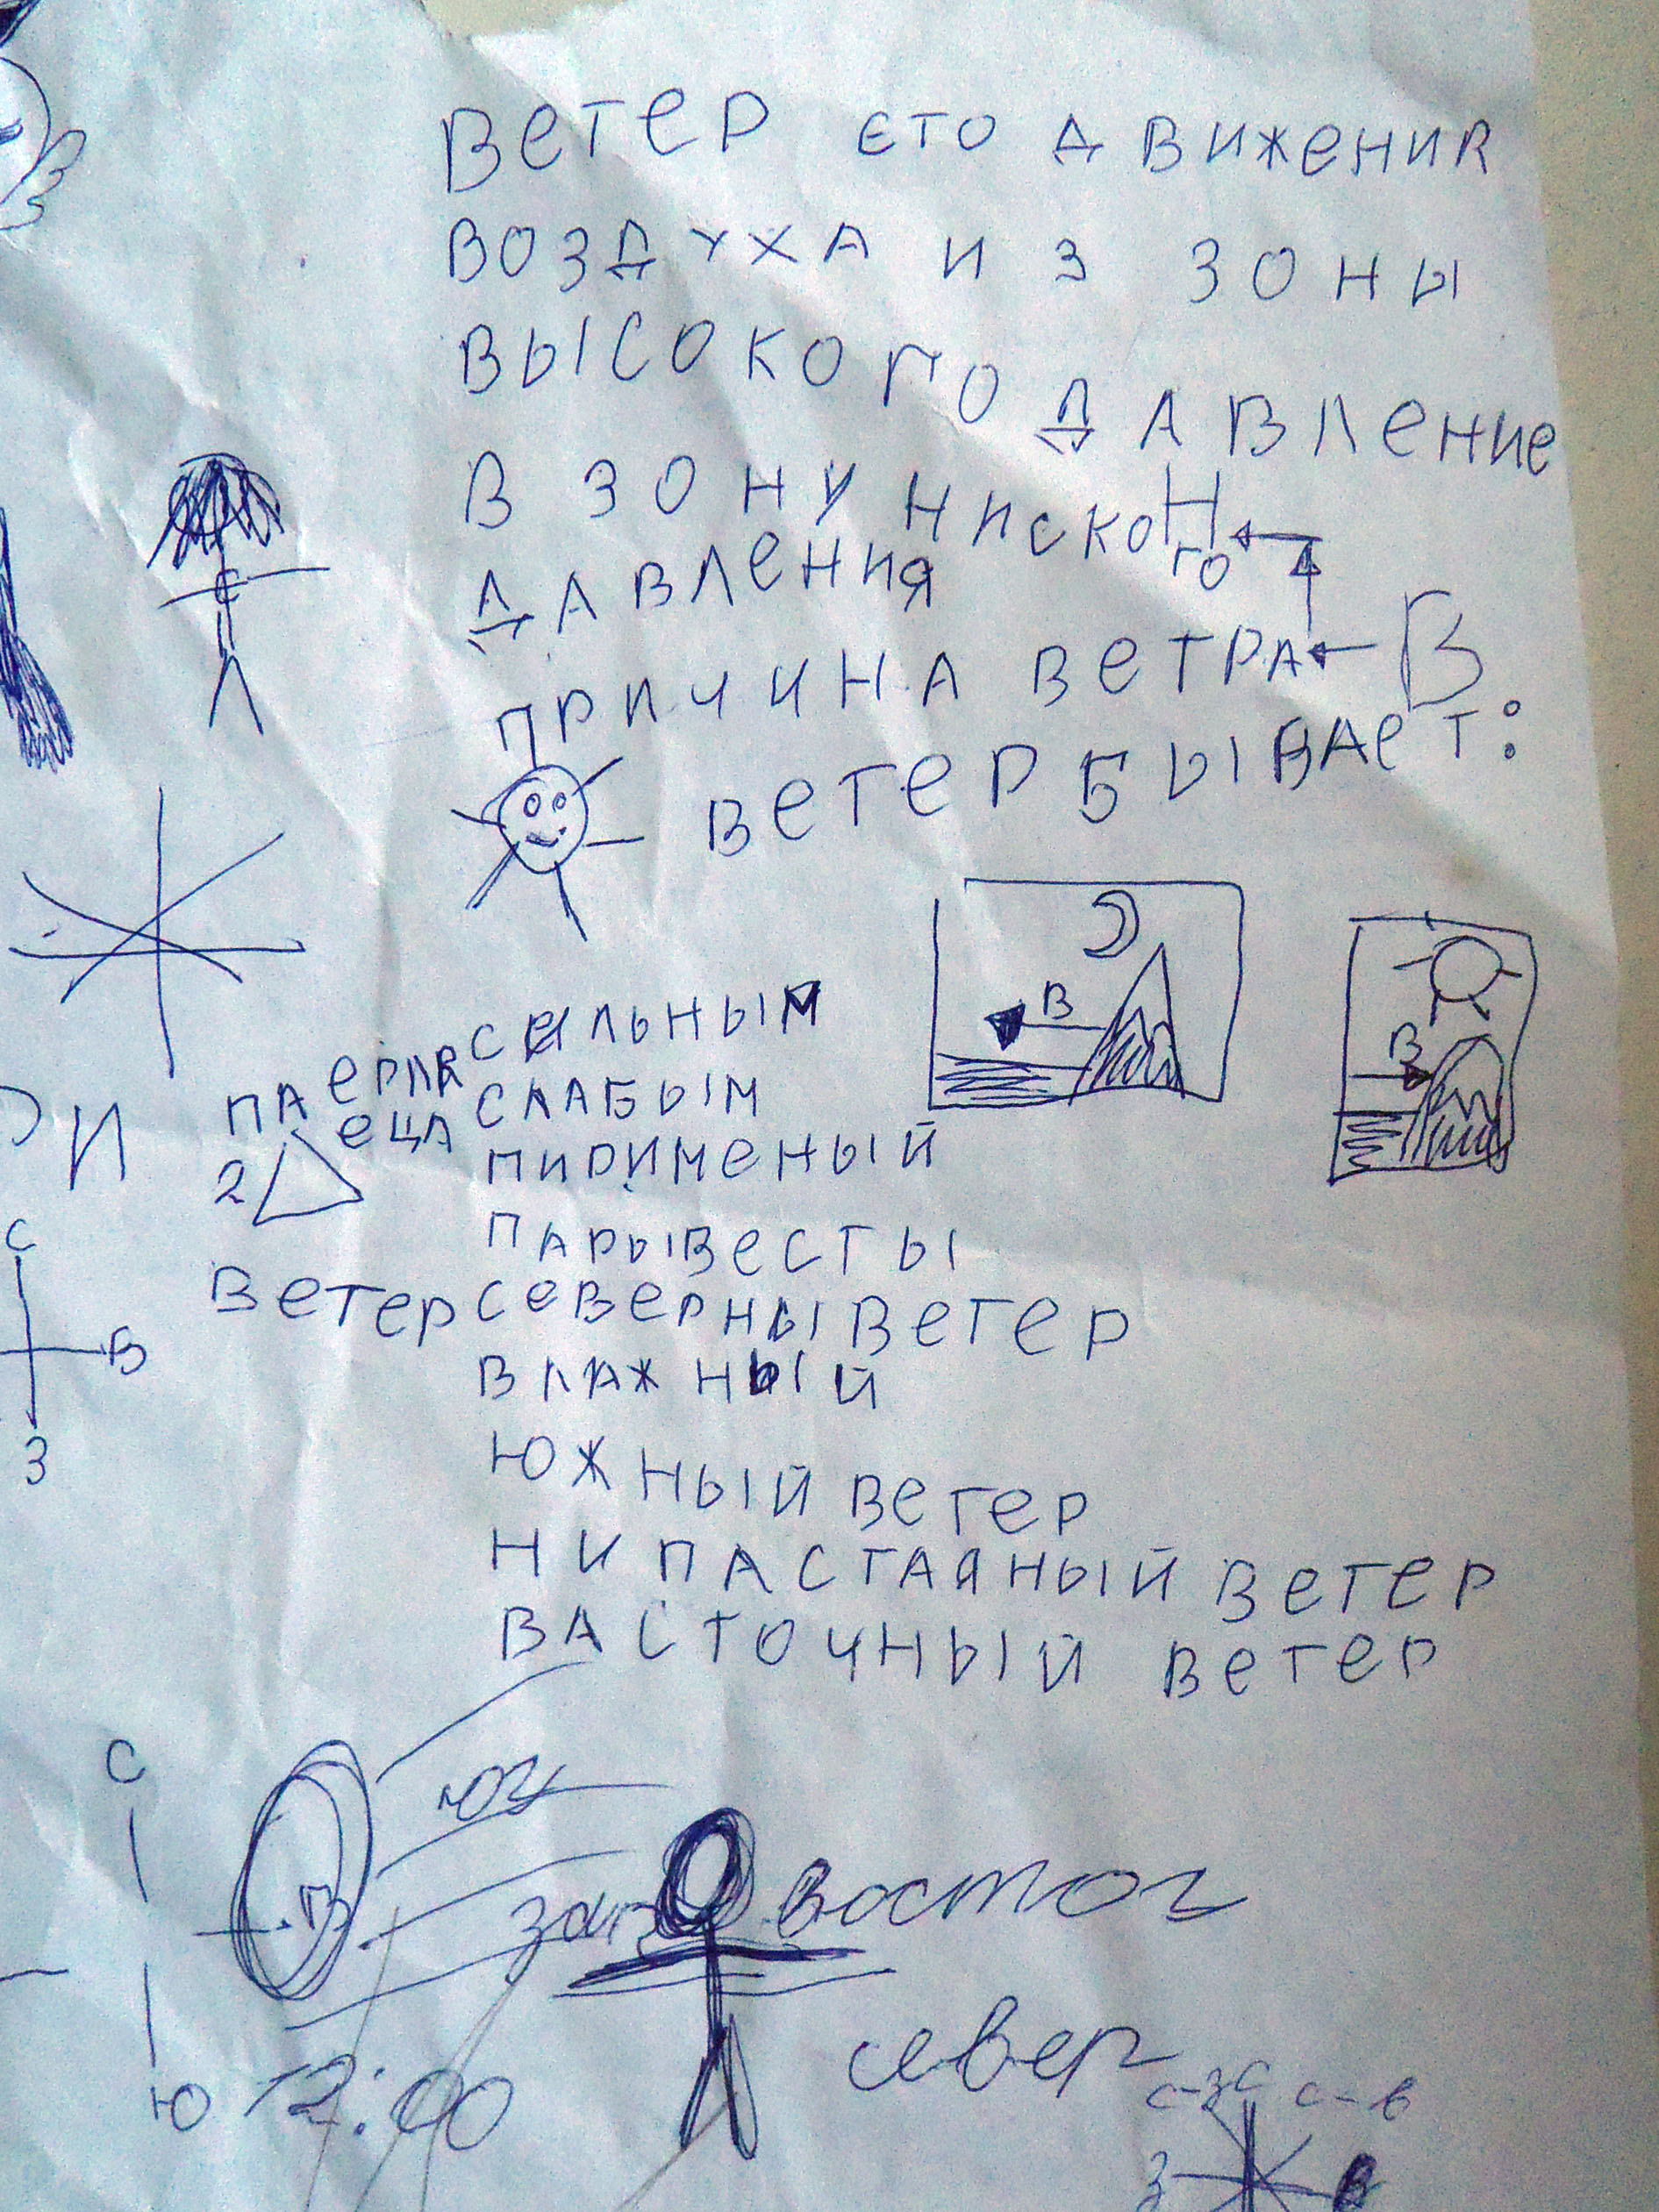 ВЕТЕР ЄТО ДВИЖЕНИЯ
ВОЗДУХА ИЗ ЗОНЫ
ВЫСОКОГО ДАВЛЕНИЕ
В ЗОНУ НИСКОГО Н
ДАВЛЕНИЯ
ПРИЧИНА ВЕТРА В
ВЕТЕР БЫВАЕТ:
В
В
СИЛЬНЫМ
СЛАБЫМ
ПИРИМЕНЫЙ
ПАРЫВЕСТЫ
ВЕТЕР СЕВЕРНЫ ВЕТЕР
ВЛАЖНЫЙ
ЮЖНЫЙ ВЕТЕР
НИПАСТАЯНЫЙ ВЕТЕР
ВАСТОЧНЫЙ ВЕТЕР
И
2
С
В
З
С
В
зап восток
север
Ю 12:00
с-з С с-в
З В